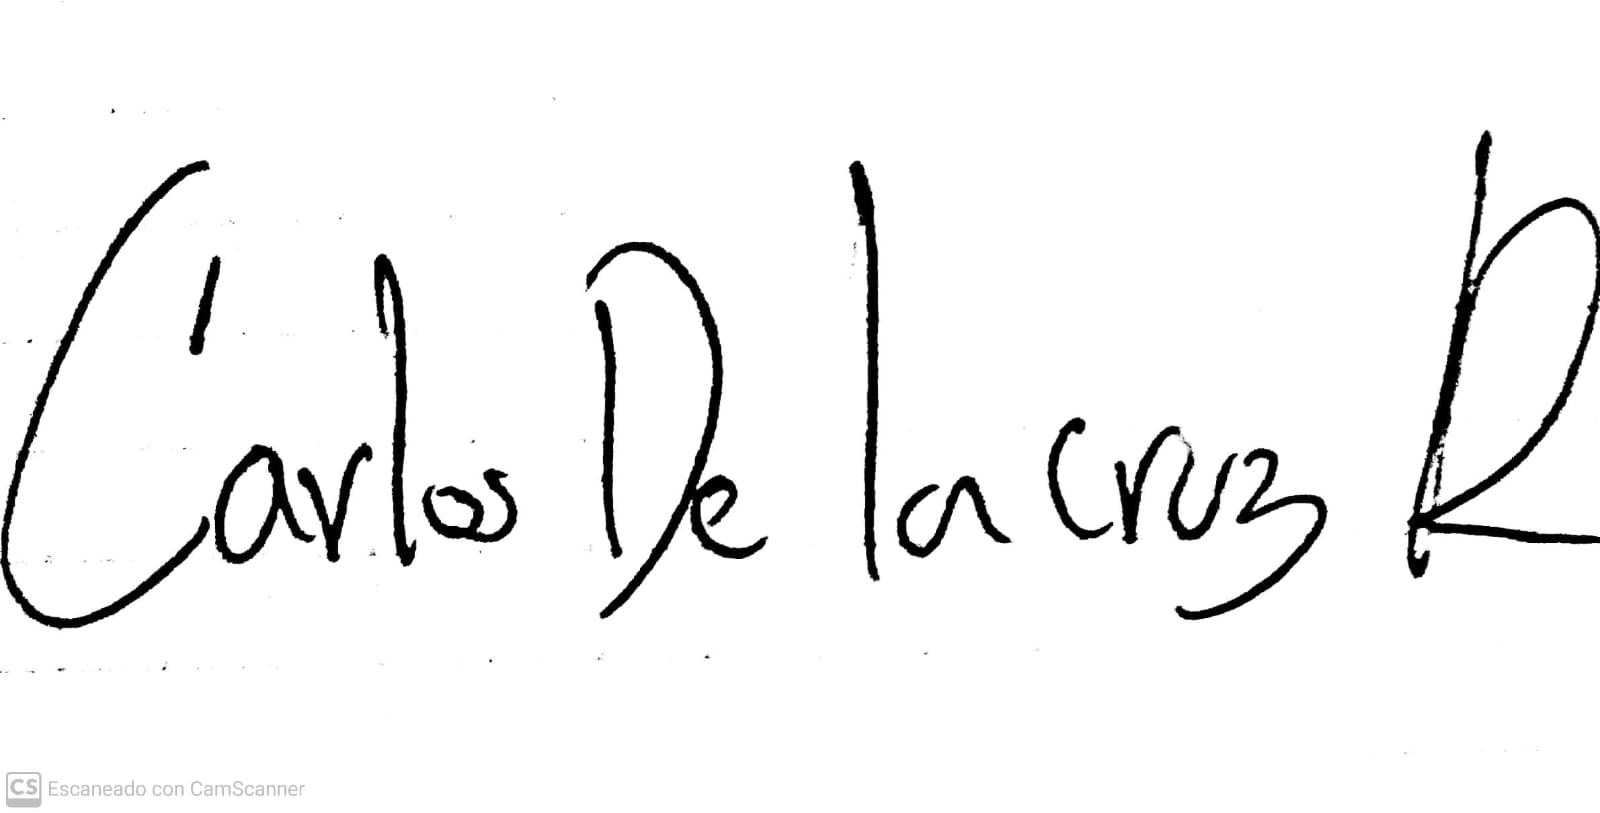 Carlos De la cruz R
CS Escaneado con CamScanner